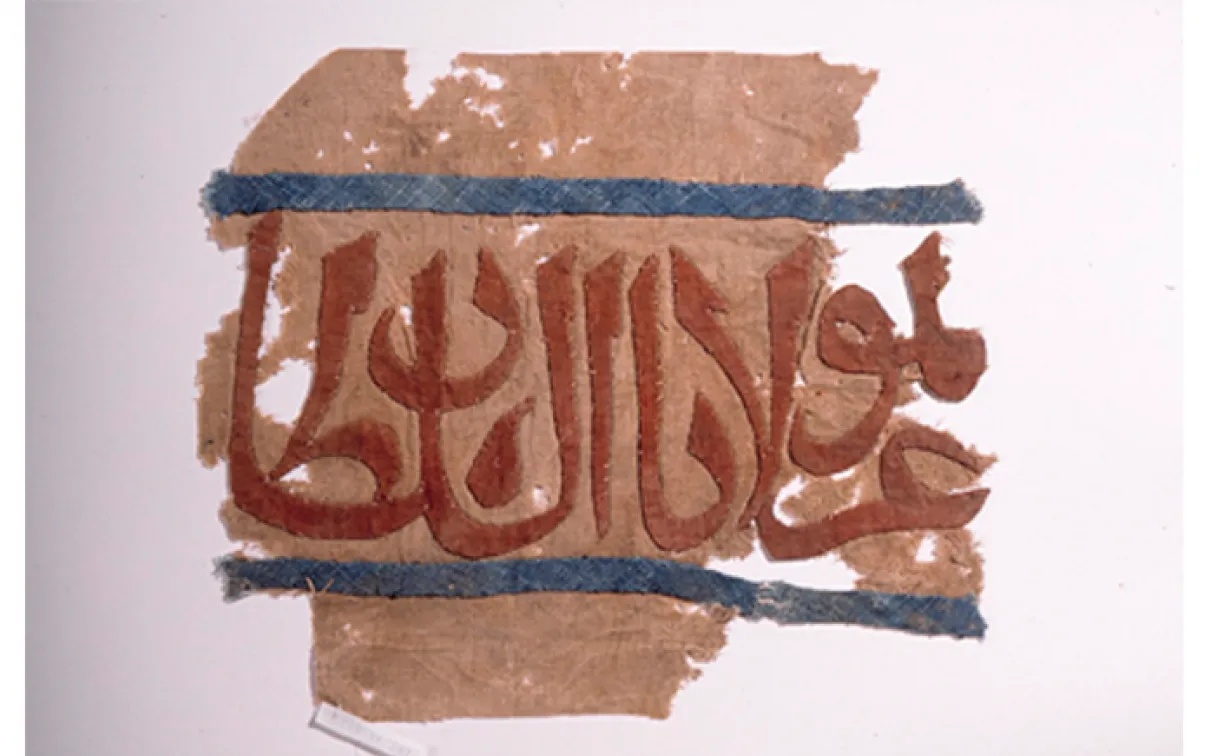 عز لمولانا السلطا